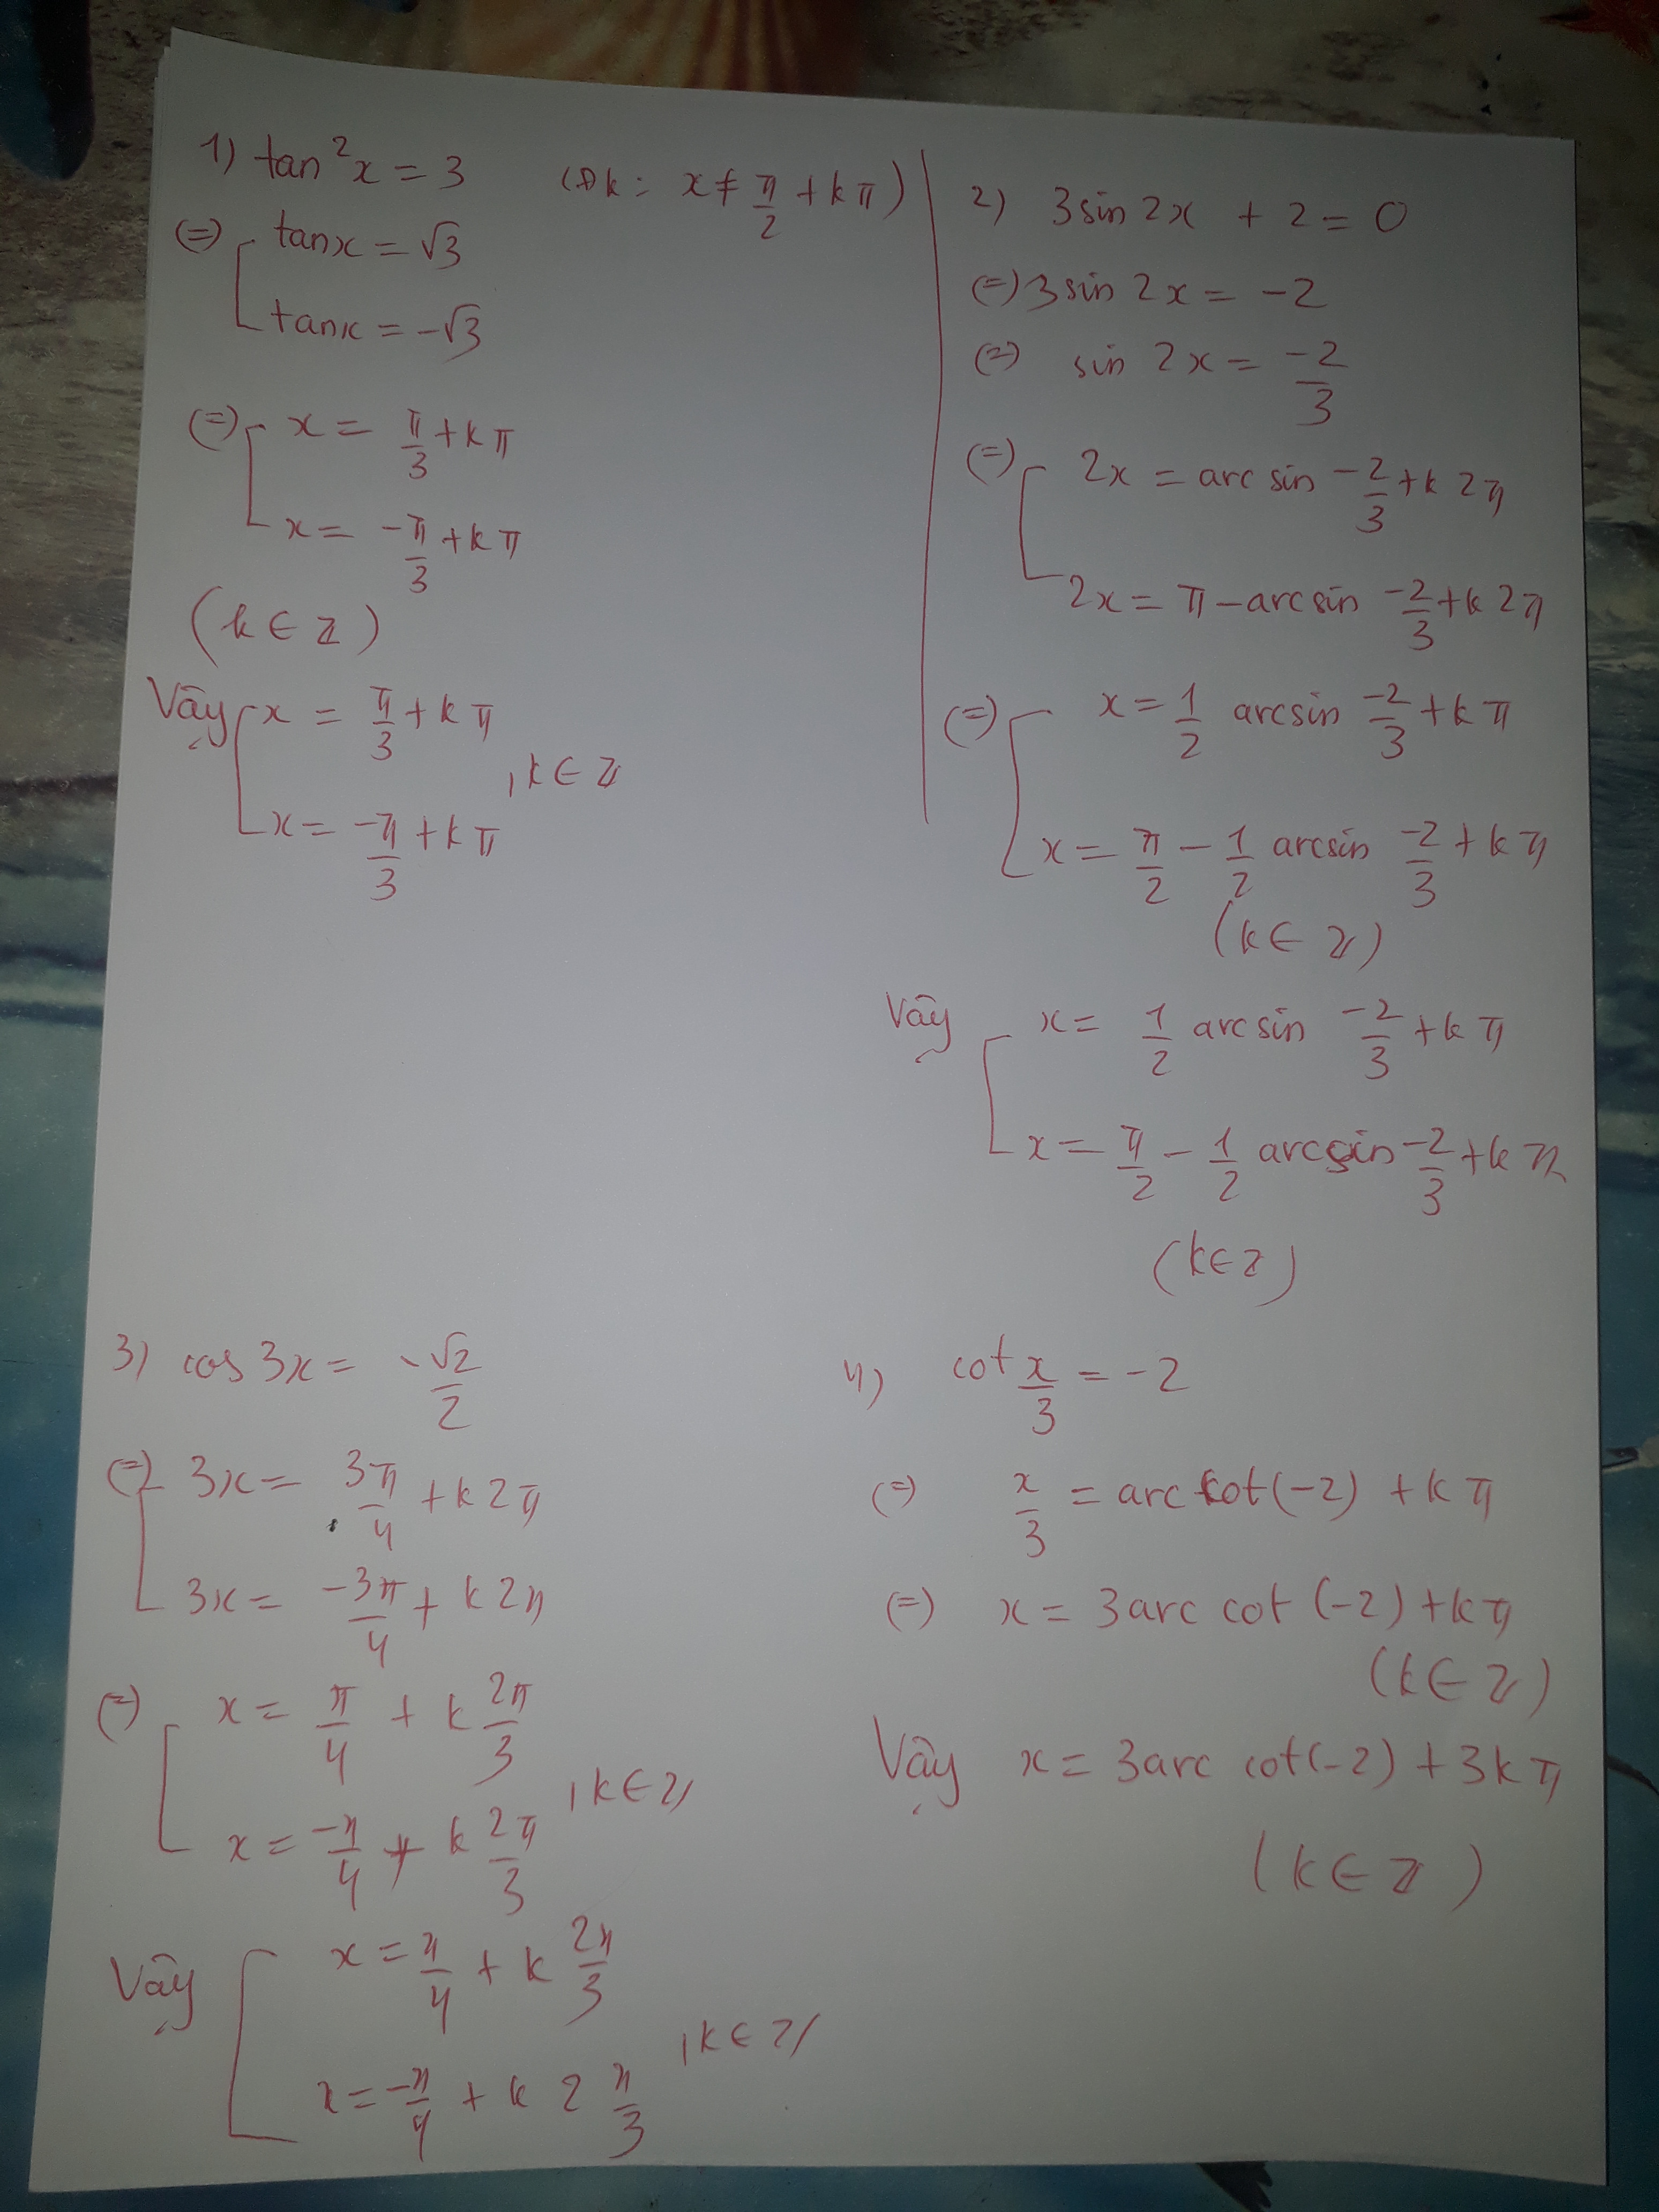 1) tan²x = 3 (Đk: x ≠ π/2 + kπ)
(=) [ tanx = √3
tanx = -√3
(=) [ x = π/3 + kπ
x = -π/3 + kπ
(k ∈ Z)
Vậy [ x = π/3 + kπ
x = -π/3 + kπ , k ∈ Z
2) 3sin 2x + 2 = 0
(=) 3sin 2x = -2
(=) sin 2x = -2/3
(=) [ 2x = arc sin -2/3 + k2π
2x = π - arcsin -2/3 + k2π
(=) [ x = 1/2 arcsin -2/3 + kπ
x = π/2 - 1/2 arcsin -2/3 + kπ
(k ∈ Z)
Vậy [ x = 1/2 arcsin -2/3 + kπ
x = π/2 - 1/2 arcsin -2/3 + kπ
(k ∈ Z)
3) cos 3x = -√2/2
(=) [ 3x = 3π/4 + k2π
3x = -3π/4 + k2π
(=) [ x = π/4 + k 2π/3
x = -π/4 + k 2π/3 , k ∈ Z
Vậy [ x = π/4 + k 2π/3
x = -π/4 + k 2 π/3 , k ∈ Z
4) cot x/3 = -2
(=) x/3 = arc cot(-2) + kπ
(=) x = 3arc cot (-2) + kπ
(k ∈ Z)
Vậy x = 3arc cot(-2) + 3kπ
(k ∈ Z)